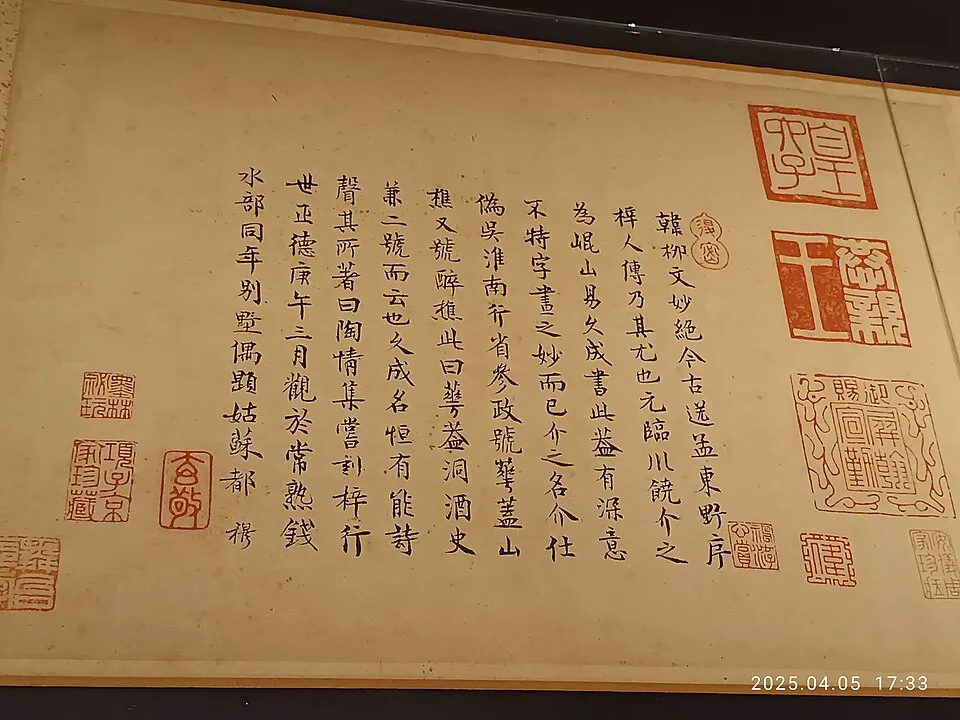 韓柳文妙絕今古送孟東野序
梓人傳乃其尤也元臨川饒介之
為崐山易久成書此蓋有深意
不特字畫之妙而已介之名介仕
僞吳淮南行省參政號華蓋山
樵又號醉樵此曰華蓋洞酒史
兼二號而云也久成名恒有能詩
聲其所著曰陶情集嘗刻梓行
世正德庚午三月觀於常熟錢
水部同年別墅偶題姑蘇都穆
皇十一子
成親王
項子京家珍藏
玄敬
2025.04.05 17:33